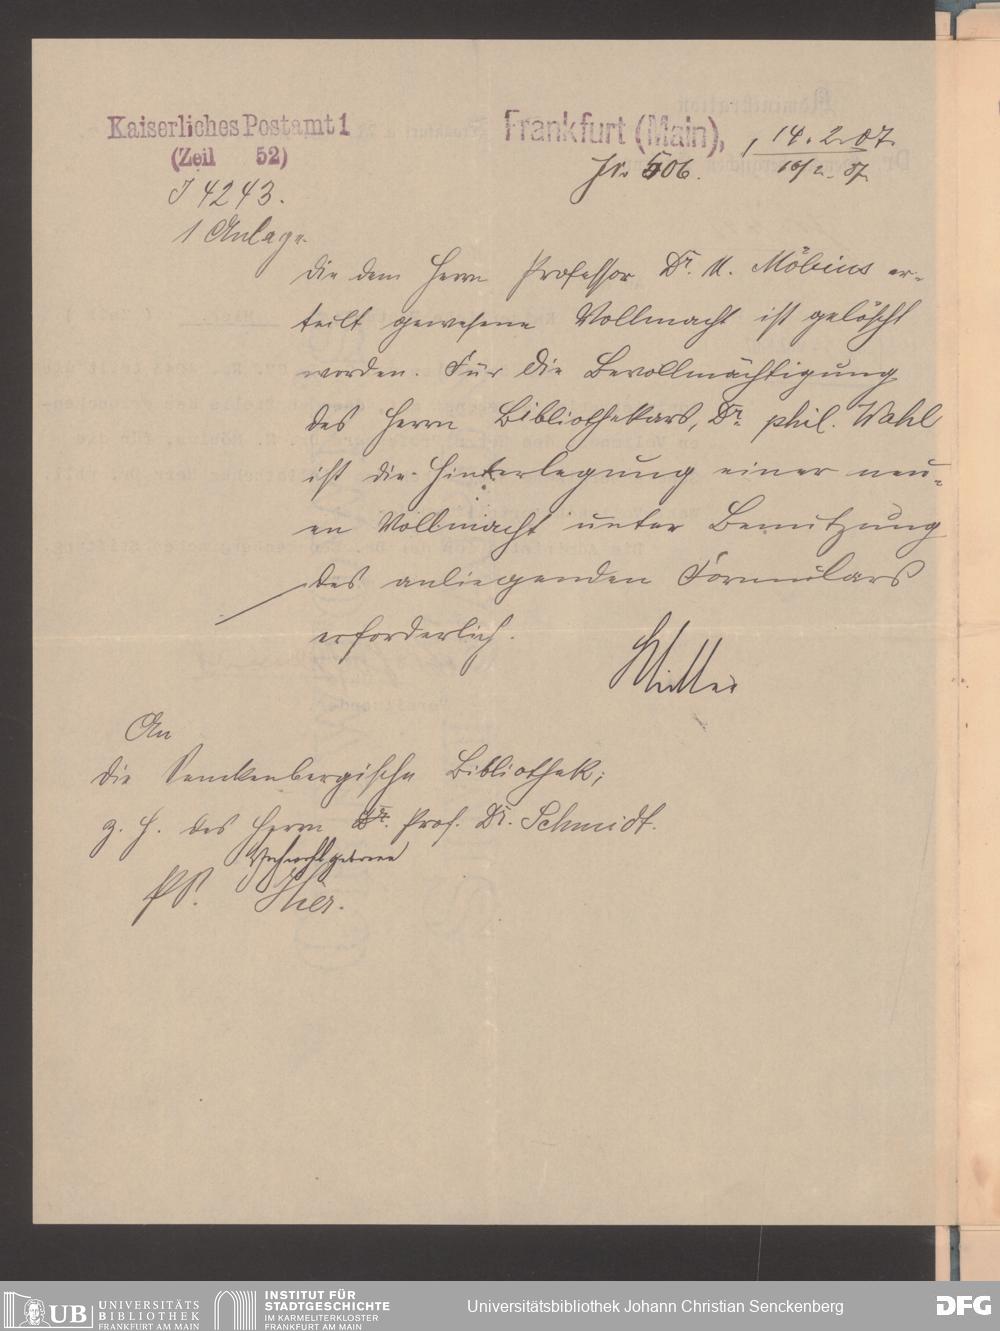 Kaiserliches Postamt 1
(Zeil 52)
J 4243.
1 Anlage.
Frankfurt (Main), 14.2.07.
506. 16/2. 07.
Die dem Herrn Professor Dr. M. Möbius er-
teilt gewesene Vollmacht ist gelöscht
worden. Für die Bevollmächtigung
des Herrn Bibliothekars, Dr. phil. Wahl
ist die Hinterlegung einer neu-
en Vollmacht unter Benutzung
des anliegenden Formulars
erforderlich.
An
die Senckenbergische Bibliothek,
z. H. des Herrn Prof. Dr. Schmidt.
Hochwohlgeboren
Hier.
UB UNIVERSITÄTS
BIBLIOTHEK
FRANKFURT AM MAIN
INSTITUT FÜR
STADTGESCHICHTE
IM KARMELITERKLOSTER
FRANKFURT AM MAIN
Universitätsbibliothek Johann Christian Senckenberg
DFG